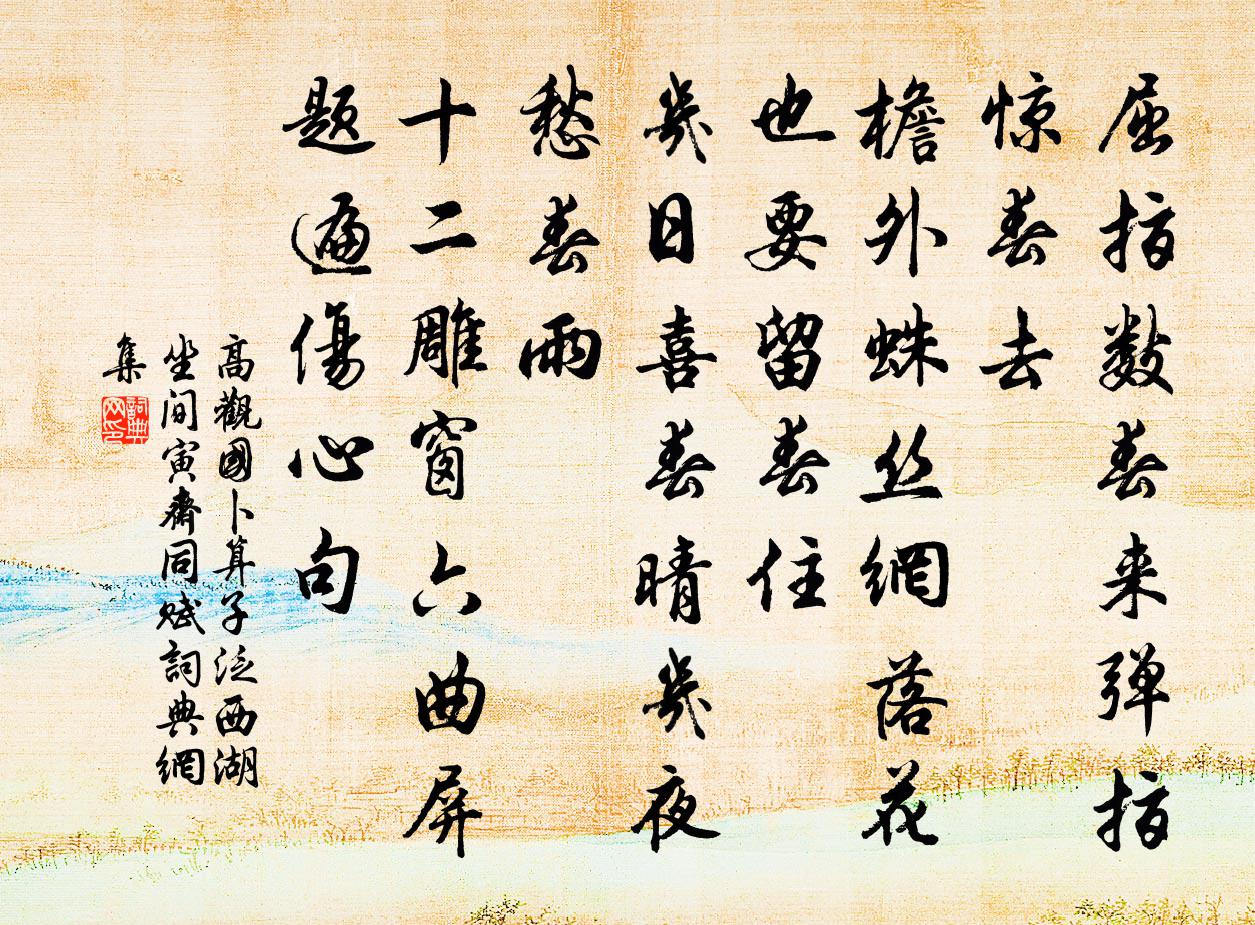 屈指数春来弹指
惊春去
檐外蛛丝網落花
也要留春住
幾日喜春晴幾夜
愁春雨
十二雕窗六曲屏
题遍傷心句
高觀國卜算子泛西湖
坐间寅齋同赋詞典網
集
詞典網印